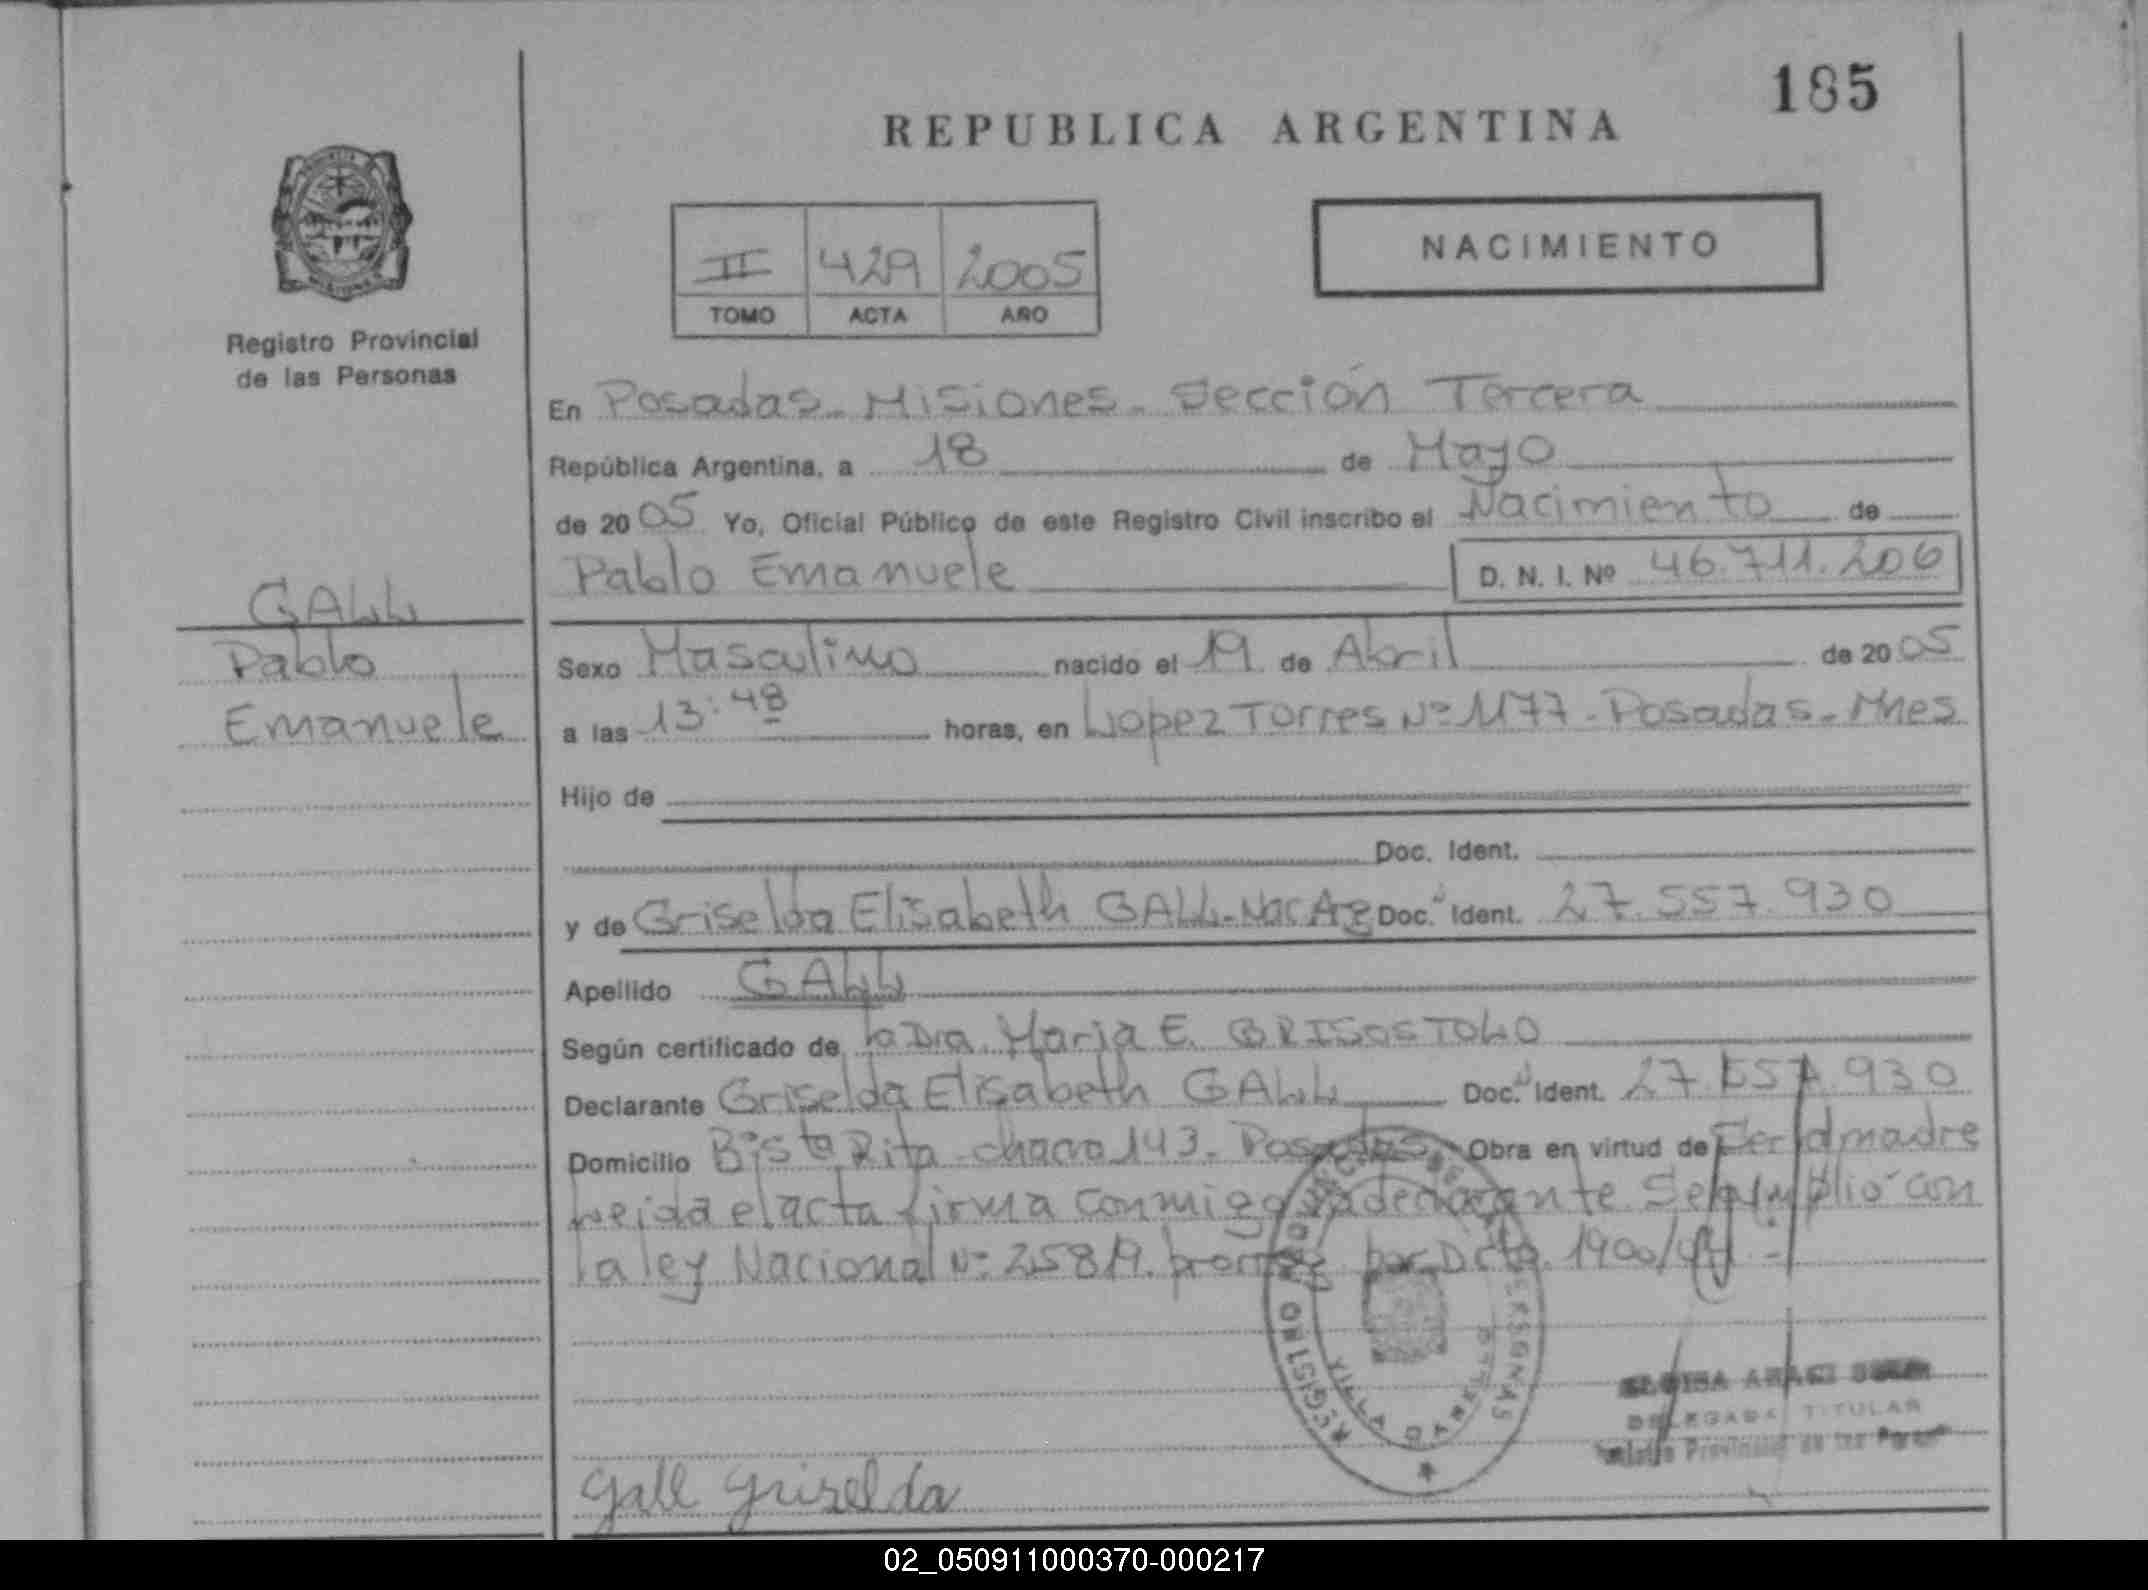 185
REPUBLICA ARGENTINA
NACIMIENTO
II 429 2005
TOMO ACTA AÑO
Registro Provincial
de las Personas
En Posadas - Misiones - Sección Tercera
República Argentina, a 18 de Mayo
de 2005 Yo, Oficial Público de este Registro Civil inscribo el Nacimiento de
Pablo Emanuele D. N. I. Nº 46.711.206
GALL
Pablo
Emanuele
Sexo Masculino nacido el 19 de Abril de 2005
a las 13:48 horas, en Lopez Torres Nº 1177 - Posadas - Mnes
Hijo de
Doc. Ident.
y de Griselda Elisabeth GALL - Nac Arg Doc. Ident. 27.557.930
Apellido GALL
Según certificado de la Dra. Maria E. GRISOSTOLO
Declarante Griselda Elisabeth GALL Doc. Ident. 27.557.930
Domicilio Bº Sta Rita - chacra 143 - Posadas Obra en virtud de Ser la madre
Leida el acta firma conmigo la declarante. Se cumplió con
la ley Nacional Nº 25819. prorrog por Dcto. 1900/04 -
REGISTRO PERSONAS
VILLA
DELEGADA TITULAR
Provincial de las
Gall Griselda
02_050911000370-000217